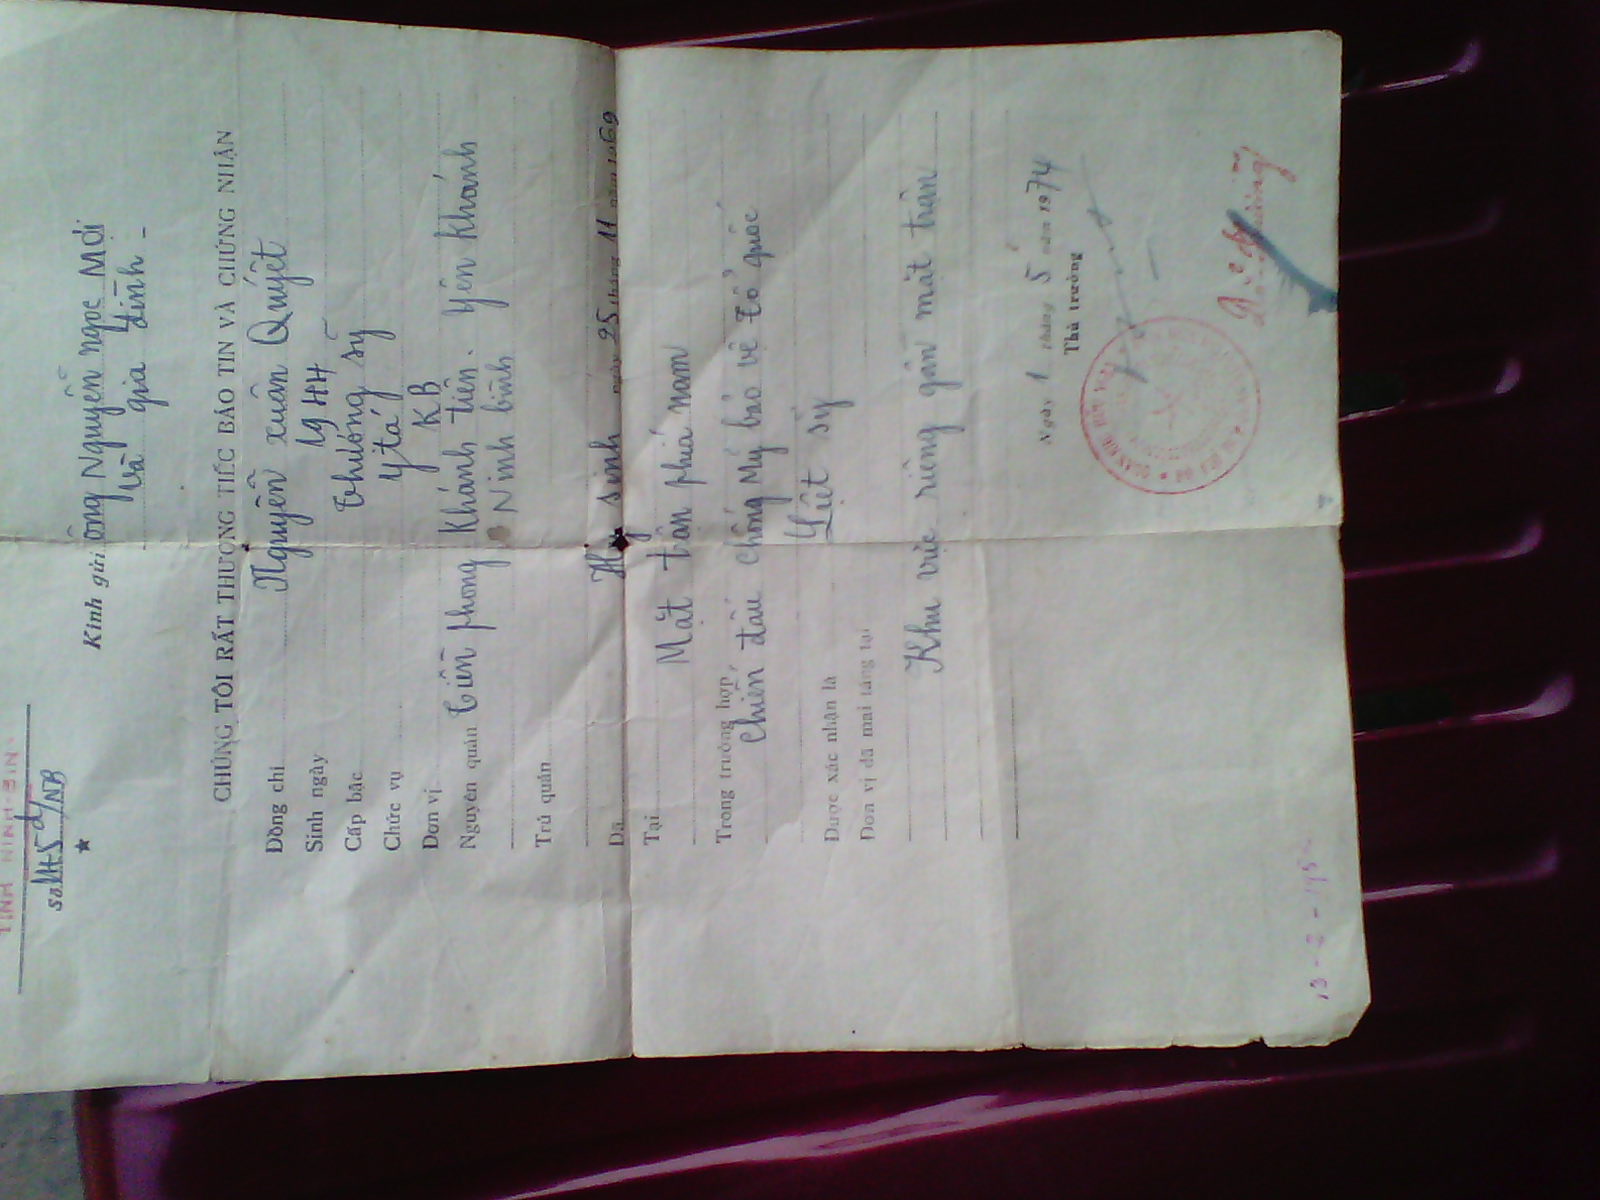 TỈNH NINH-BÌNH
Số 1t5 d/NB
Kính gửi ông Nguyễn ngọc Mới
Và gia đình -
CHÚNG TÔI RẤT THƯƠNG TIẾC BÁO TIN VÀ CHỨNG NHẬN
Đồng chí Nguyễn xuân Quyết
Sinh ngày 1944
Cấp bậc thượng sỹ
Chức vụ y tá
Đơn vị KB
Nguyên quán tiền phong Khánh tiên. Yên Khánh
Ninh bình
Trú quán
Đã Hy sinh ngày 25 tháng 11 năm 1969
Tại Mặt trân phiá nam
Trong trường hợp
chiến đấu chống Mỹ bảo vệ tổ quốc
Được xác nhận là Liệt sỹ
Đơn vị đã mai táng tại
Khu vực riêng gần mặt trận
Ngày 1 tháng 5 năm 1974
Thủ trưởng